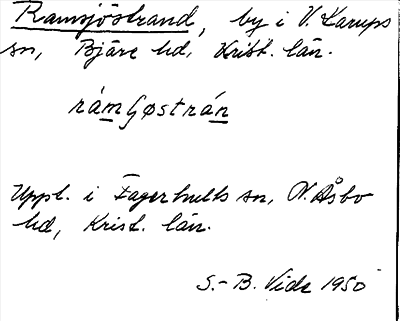 Ramsjöstrand, by i V. Karups
sn, Bjäre hd, Krist. län.
Uppl. i Fagerhults sn, N. Åsbo
hd, Krist. län.
S.-B. Vide 1950